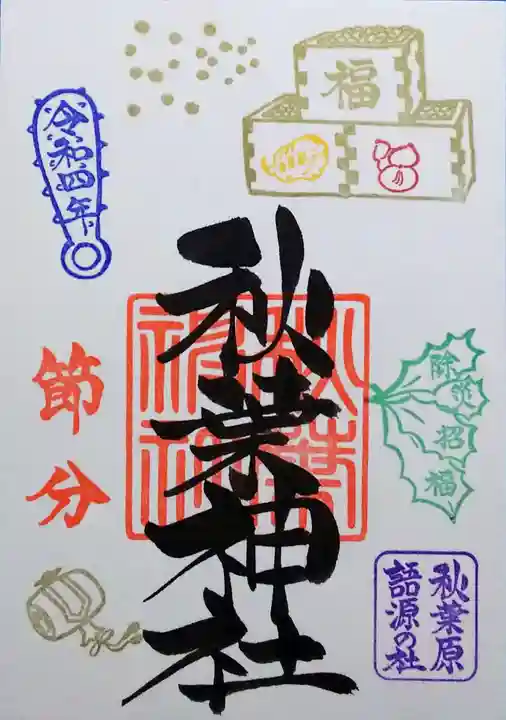 福
令和四年
秋葉神社
秋葉神社
節分
除災招福
秋葉原
語源の社